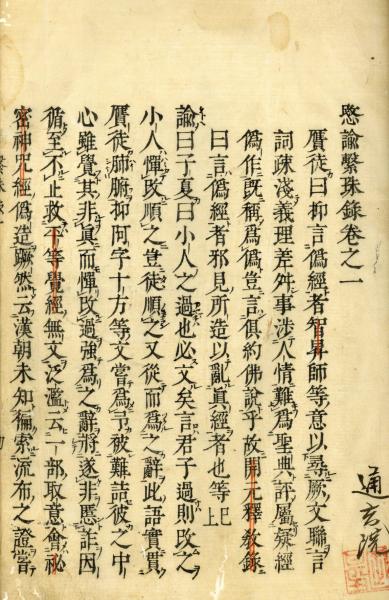 愍諭繫珠錄卷之一
贋徒曰抑言僞經者智昇師等意以尋厥文聯言
詞疎淺義理差舛事涉人情難爲聖典評屬疑經
僞作既稱爲僞豈言俱約佛說乎故開元釋教錄
曰言僞經者邪見所造以亂眞經者也等已上
諭曰子夏曰小人之過也必文矣言君子過則改之
小人憚改順之豈徒順之又從而爲之辭此語實貫
贋徒肺腑抑阿字十方等文當爲弓被難詰彼之中
心雖覺其非眞而憚改過強爲之辭將遂非慝詐因
循至不止救下等覺經無文泛濫云一部取意會祕
密神咒經僞造蹶然云漢朝未知徧索流布之證當
通玄院